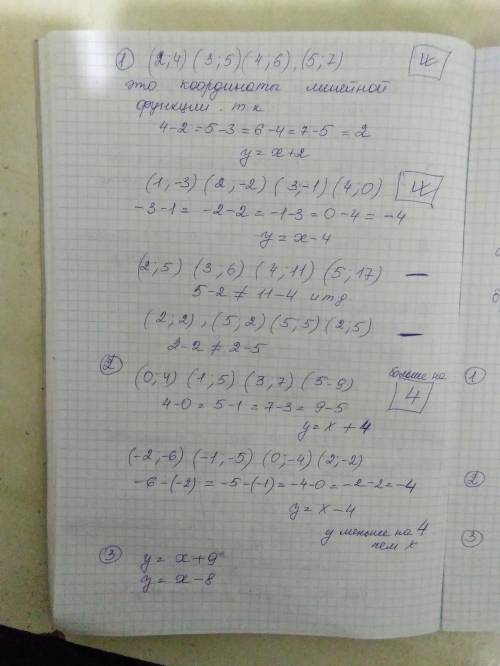 ① (2;4) (3;5) (4,6), (5;7)
это координаты линейной
функции. т.к
4-2=5-3=6-4=7-5=2
y=x+2
(1,-3) (2,-2) (3,-1) (4,0)
-3-1= -2-2=-1-3=0-4=-4
y=x-4
(2,5) (3,6) (4,11) (5,17) —
5-2≠11-4 итд
(2;2), (5,2) (5,5) (2,5) —
2-2≠2-5
② больше на
(0;4) (1,5) (3,7) (5-9) 4
4-0=5-1=7-3=9-5
y=x+4
(-2,-6) (-1,-5) (0;-4) (2;-2)
-6-(-2)=-5-(-1)=-4-0=-2-2=-4
y=x-4
y меньше на 4
чем x
③ y=x+9
y=x-8
①
②
③